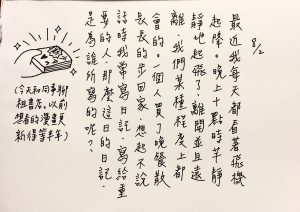 8/2
最近我每天都看著飛機
起降。晚上十點時平
靜地起飛了,離開並且遠
離,我們某種程度上都
會的。一個人買了晚餐散
長長的步回家,想起不說
話時我常寫日記,寫給重
要的人,那麼這日的日記,
是為誰所寫的呢?
(今天和同事聊
租書店。以前
想看的漫畫
新得等半年)